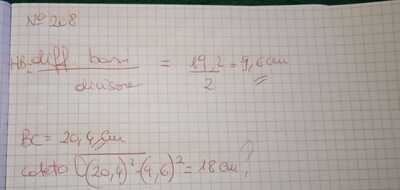 N° 208
HB = diff basi / divisore = 19,2 / 2 = 9,6 cm
BC = 20,4 cm
cateto √(20,4)² - (9,6)² = 18 cm ?